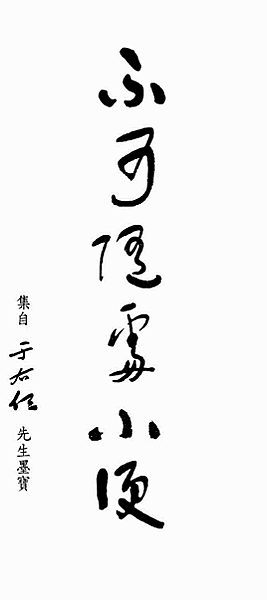 不可隨處小便
集自于右任先生墨寶